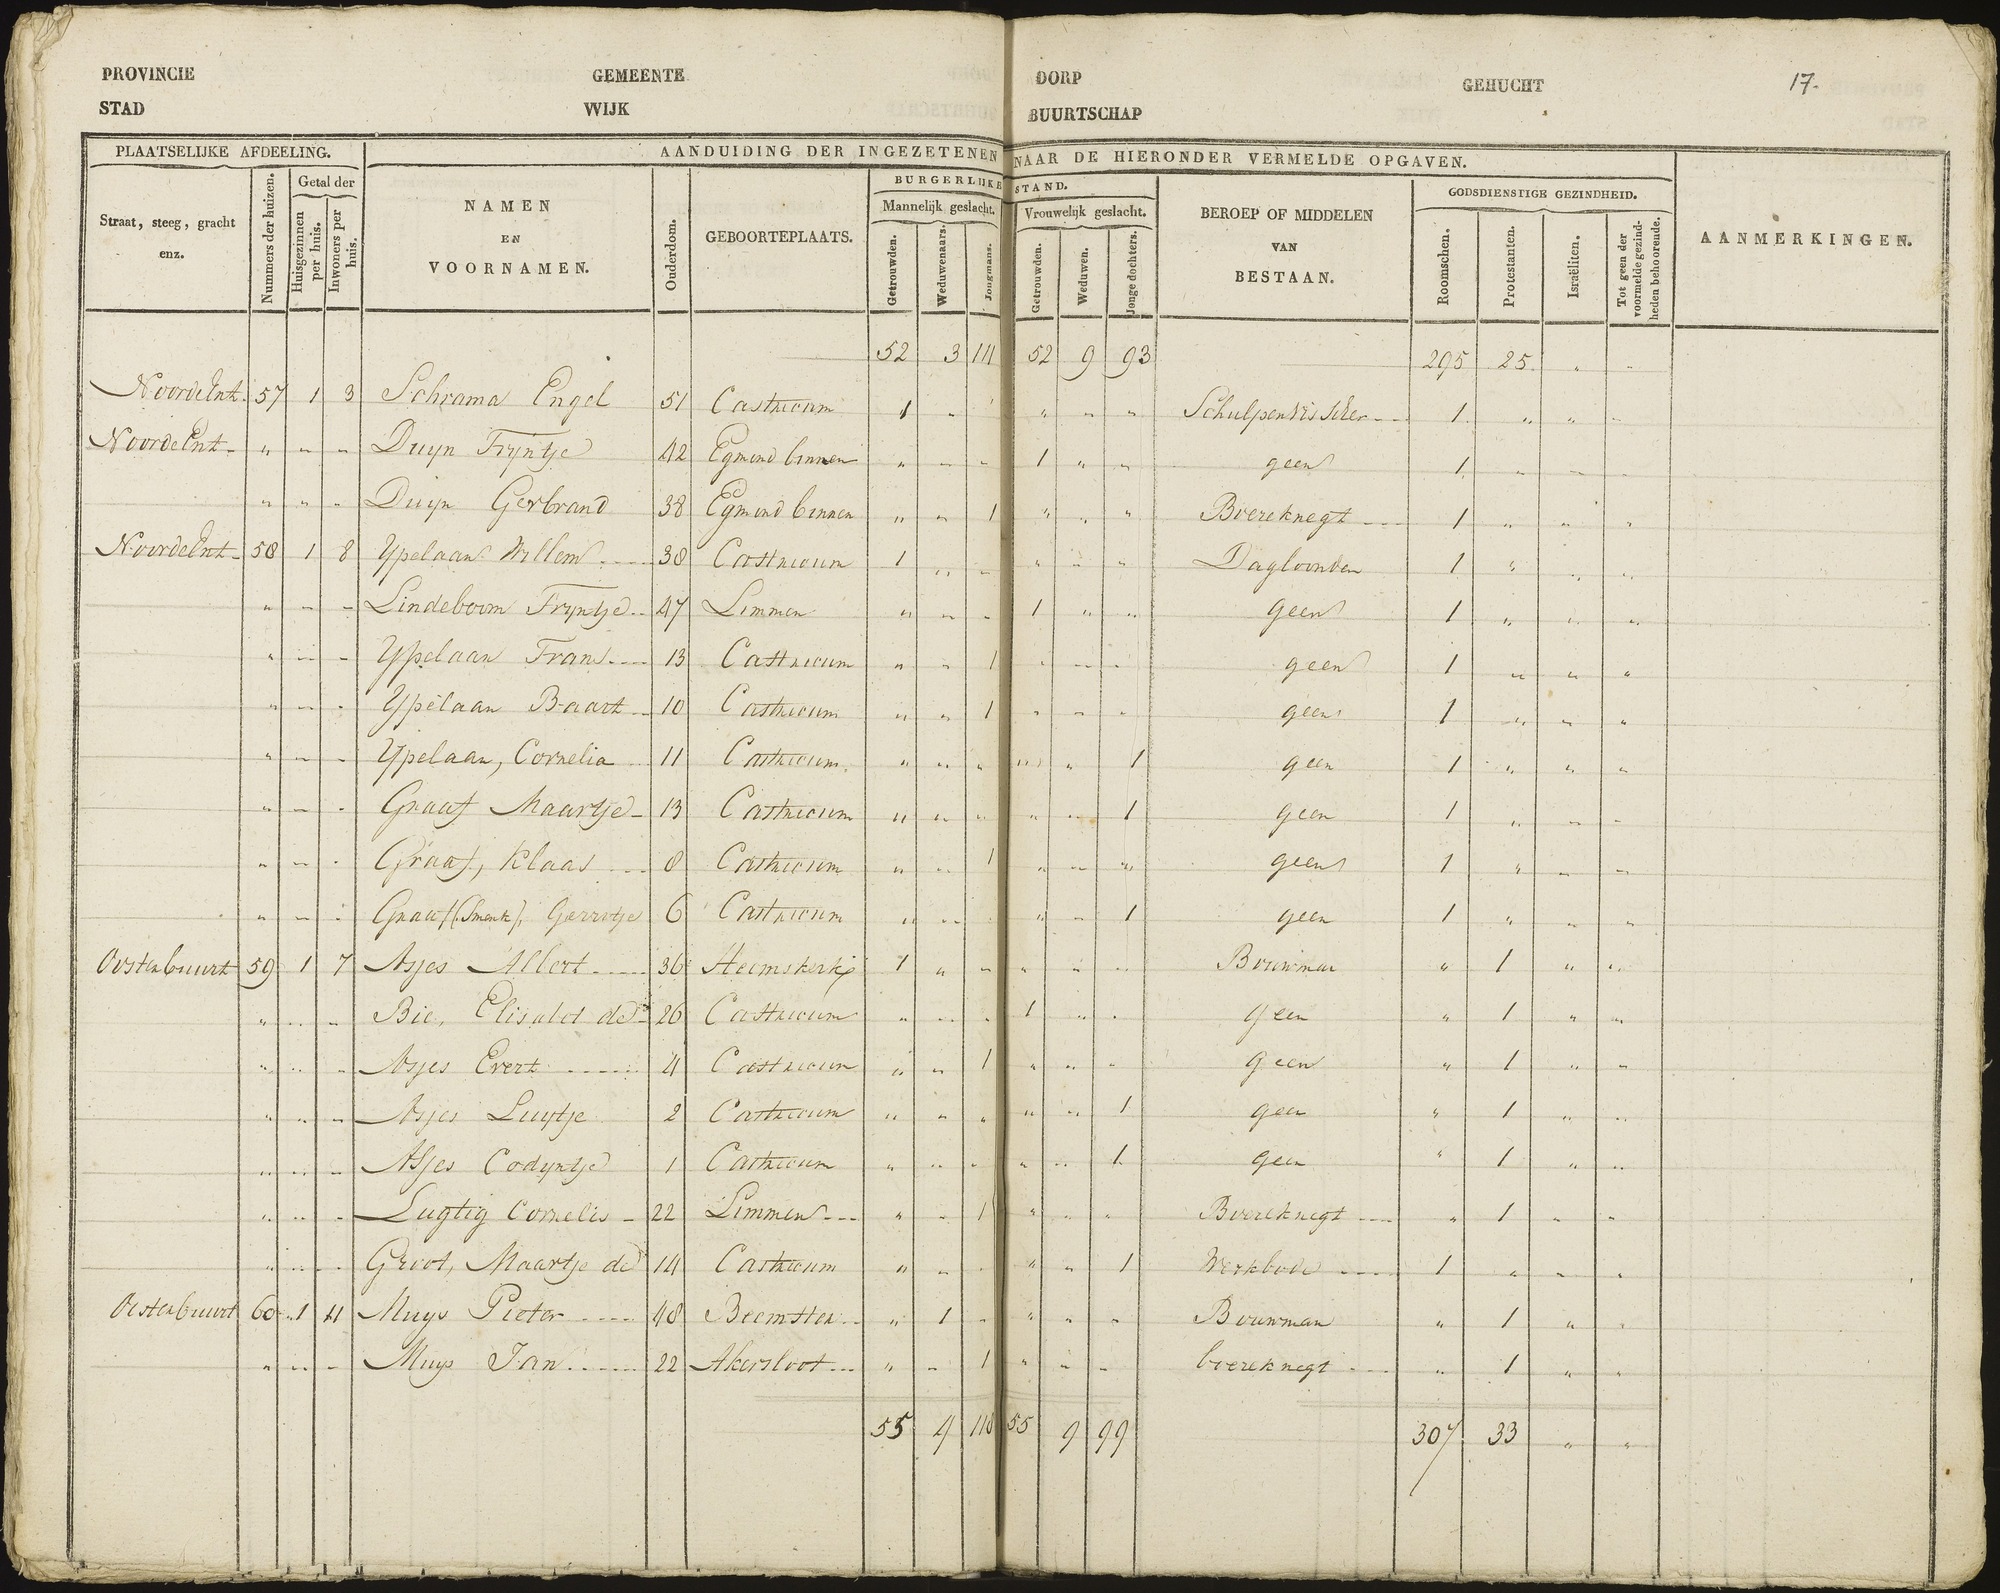 PROVINCIE GEMEENTE DORP GEHUCHT 17.
STAD WIJK BUURTSCHAP
PLAATSELIJKE AFDEELING. AANDUIDING DER INGEZETENEN NAAR DE HIERONDER VERMELDE OPGAVEN.
Straat, steeg, gracht enz.
Nummers der huizen.
Getal der
Huisgezinnen per huis.
Inwoners per huis.
NAMEN EN VOORNAMEN.
Ouderdom.
GEBOORTEPLAATS.
BURGERLIJKE STAND.
Mannelijk geslacht.
Getrouwden.
Weduwenaars.
Jongmans.
Vrouwelijk geslacht.
Getrouwden.
Weduwen.
Jonge dochters.
BEROEP OF MIDDELEN VAN BESTAAN.
GODSDIENSTIGE GEZINDHEID.
Roomschen.
Protestanten.
Israëliten.
Tot geen der voormelde gezindheden behoorende.
AANMERKINGEN.
52 3 111 52 9 93 295 25 „ „
NoordeEnt. 57 1 3 Schrama Engel 51 Castricum 1 „ „ „ „ Schulpenvisscher 1 „ „ „
NoordeEnt „ „ „ Duyn Tryntje 42 Egmond binnen „ „ „ 1 „ „ geen 1 „ „ „
„ „ „ Duyn Gerbrand 38 Egmond binnen „ „ 1 „ „ „ Boereknegt 1 „ „ „
NoordeEnt 58 1 8 Ypelaan Willem 38 Castricum 1 „ „ „ „ „ Dagloonder 1 „ „ „
„ „ „ Lindeboom Tryntje 47 Limmen „ „ „ 1 „ „ Geen 1 „ „ „
„ „ „ Ypelaan Frans 13 Castricum „ „ 1 „ „ „ geen 1 „ „ „
„ „ „ Ypelaan Baart 10 Castricum „ „ 1 „ „ „ geen 1 „ „ „
„ „ „ Ypelaan, Cornelia 11 Castricum „ „ „ „ „ 1 geen 1 „ „ „
„ „ „ Graaf Maartje 13 Castricum „ „ „ „ „ 1 geen 1 „ „ „
„ „ „ Graaf, Klaas 8 Castricum „ „ 1 „ „ „ geen 1 „ „ „
„ „ „ Graaf (Smenk), Gerritje 6 Castricum „ „ „ „ 1 geen 1 „ „ „
Oosterbuurt 59 1 7 Asjes Albert 36 Heemskerk 1 „ „ „ „ „ Bouwman „ 1 „ „
„ „ „ Bie, Elisabet de 26 Castricum „ „ „ 1 „ „ geen „ 1 „ „
„ „ „ Asjes Evert 4 Castricum „ „ 1 „ „ „ geen „ 1 „ „
„ „ „ Asjes Luytje 2 Castricum „ „ „ „ „ 1 geen „ 1 „ „
„ „ „ Asjes Codyntje 1 Castricum „ „ „ „ „ 1 geen „ 1 „ „
„ „ „ Lugtig Cornelis 22 Limmen „ „ 1 „ „ „ Boereknegt „ 1 „ „
„ „ „ Groot, Maartje de 14 Castricum „ „ „ „ „ 1 Werkbode 1 „ „ „
Oosterbuurt 60 1 4 Muys Pieter 48 Beemster „ 1 „ „ „ „ Bouwman „ 1 „ „
„ „ „ Muys Jan 22 Akersloot „ „ 1 „ „ „ boereknegt „ 1 „ „
55 4 118 55 9 99 307 33 „ „